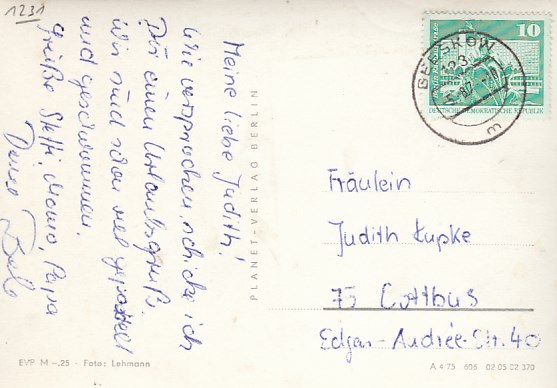 1231
Meine liebe Judith!
Wie versprochen, schicke ich
Dir einen Urlaubsgruß.
Wir sind schon viel
und geschwommen.
Grüße Steffi, Mama Papa
PLANET-VERLAG BERLIN
EVP M –,25 · Foto: Lehmann
10
DEUTSCHE DEMOKRATISCHE REPUBLIK
BEESKOW
123
Fräulein
Judith Kupke
75 Cottbus
Edgar-Andrée-Str. 40
A 4 75 606 02 05 02 370